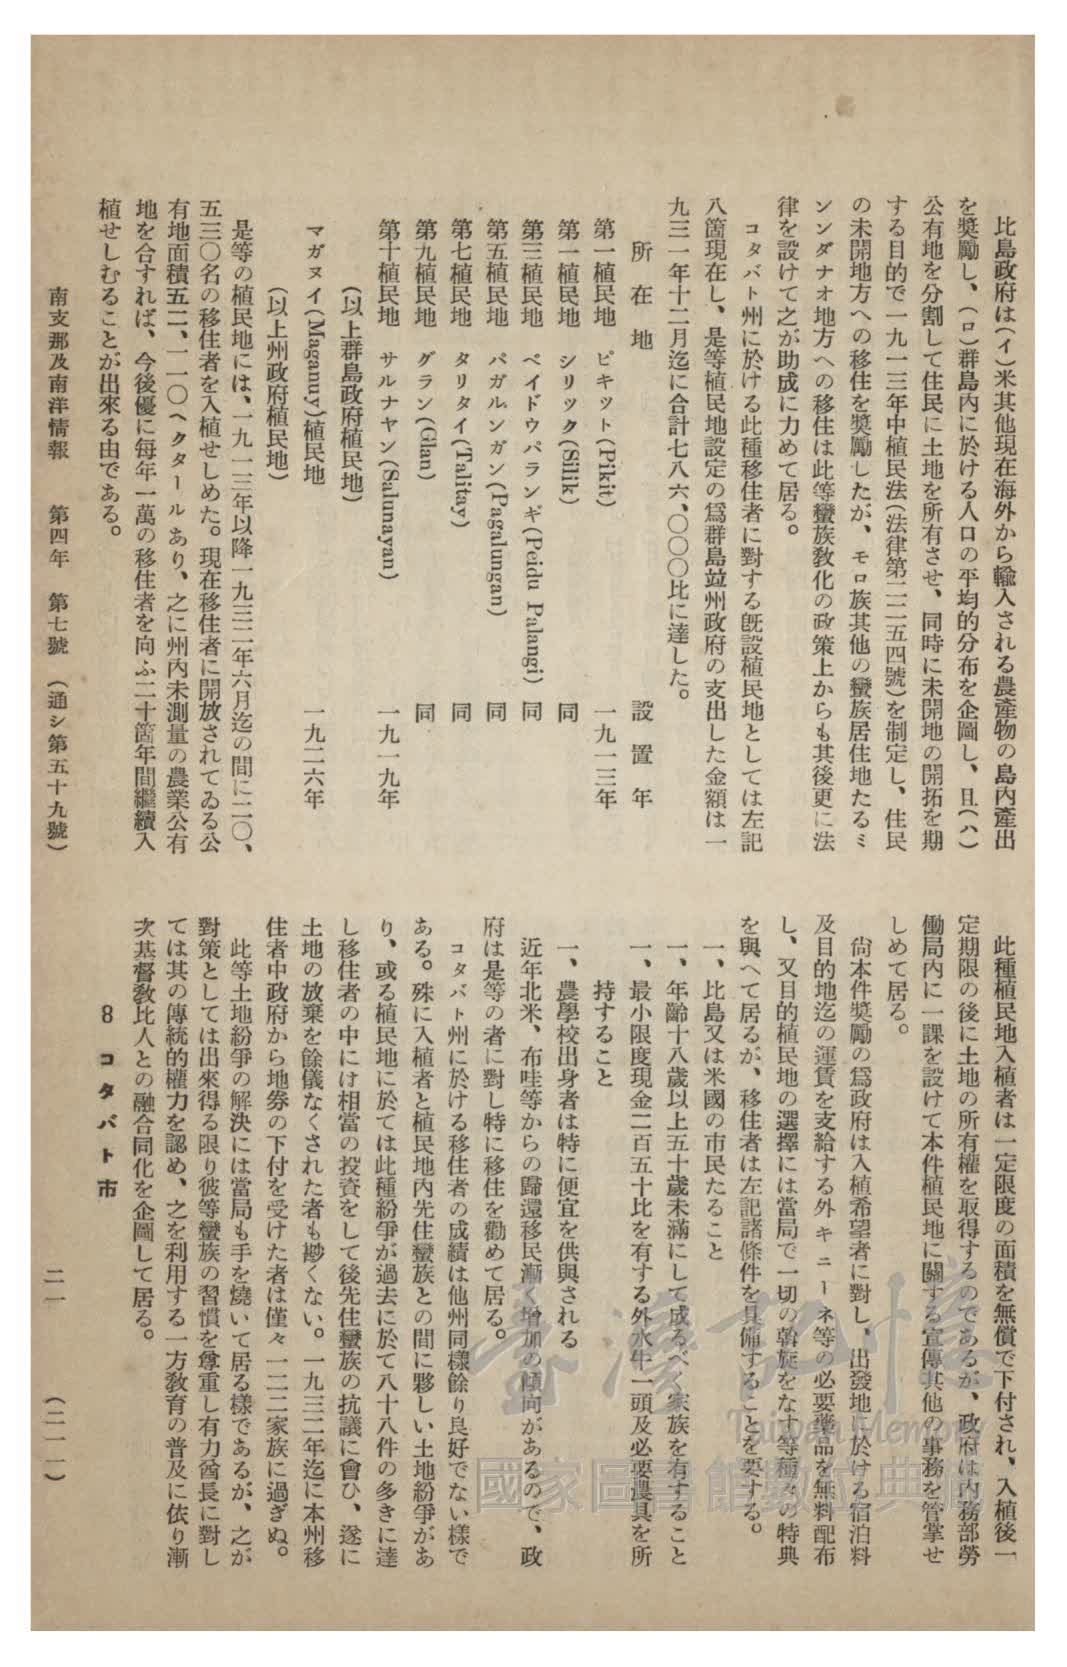 比島政府は(イ)米其他現在海外から輸入される農產物の島內產出
を奬勵し、(ロ)群島內に於ける人口の平均的分布を企圖し、且(ハ)
公有地を分割して住民に土地を所有させ、同時に未開地の開拓を期
する目的で一九一三年中植民法(法律第二二五四號)を制定し、住民
の未開地方への移住を奬勵したが、モロ族其他の蠻族居住地たるミ
ンダナオ地方への移住は此等蠻族敎化の政策上からも其後更に法
律を設けて之が助成に力めて居る。
コタバト州に於ける此種移住者に對する旣設植民地としては左記
八箇現在し、是等植民地設定の爲群島竝州政府の支出した金額は一
九三一年十二月迄に合計七八六、〇〇〇比に達した。
所在地 設置年
第一植民地 ピキット(Pikit) 一九一三年
第一植民地 シリック(Silik) 同
第三植民地 ペイドウパランギ(Peidu Palangi) 同
第五植民地 パガルンガン(Pagalungan) 同
第七植民地 タリタイ(Talitay) 同
第九植民地 グラン(Glan) 同
第十植民地 サルナヤン(Salunayan) 一九一九年
(以上群島政府植民地)
マガヌイ(Maganuy)植民地 一九二六年
(以上州政府植民地)
是等の植民地には、一九一三年以降一九三二年六月迄の間に二〇、
五三〇名の移住者を入植せしめた。現在移住者に開放されてゐる公
有地面積五二、一一〇ヘクタールあり、之に州內未測量の農業公有
地を合すれば、今後優に每年一萬の移住者を向ふ二十箇年間繼續入
植せしむることが出來る由である。
此種植民地入植者は一定限度の面積を無償で下付され、入植後一
定期限の後に土地の所有權を取得するのであるが、政府は內務部勞
働局內に一課を設けて本件植民地に關する宣傳其他の事務を管掌せ
しめて居る。
尙本件奬勵の爲政府は入植希望者に對し、出發地に於ける宿泊料
及目的地迄の運賃を支給する外キニーネ等の必要藥品を無料配布
し、又目的植民地の選擇には當局で一切の斡旋をなす等種々の特典
を與へて居るが、移住者は左記諸條件を具備することを要する。
一、比島又は米國の市民たること
一、年齡十八歲以上五十歲未滿にして成るべく家族を有すること
一、最小限度現金二百五十比を有する外水牛一頭及必要農具を所
持すること
一、農學校出身者は特に便宜を供與される
近年北米、布哇等からの歸還移民漸く增加の傾向があるので、政
府は是等の者に對し特に移住を勸めて居る。
コタバト州に於ける移住者の成績は他州同樣餘り良好でない樣で
ある。殊に入植者と植民地內先住蠻族との間に夥しい土地紛爭があ
り、或る植民地に於ては此種紛爭が過去に於て八十八件の多きに達
し移住者の中には相當の投資をして後先住蠻族の抗議に會ひ、遂に
土地の放棄を餘儀なくされた者も尠くない。一九三二年迄に本州移
住者中政府から地券の下付を受けた者は僅々一二二家族に過ぎぬ。
此等土地紛爭の解決には當局も手を燒いて居る樣であるが、之が
對策としては出來得る限り彼等蠻族の習慣を尊重し有力酋長に對し
ては其の傳統的權力を認め、之を利用する一方敎育の普及に依り漸
次基督敎比人との融合同化を企圖して居る。
8 コタバト市
南支那及南洋情報 第四年 第七號 (通シ第五十九號) 二一 (二一一)
臺灣記憶
Taiwan Memory
國家圖書館數位典藏